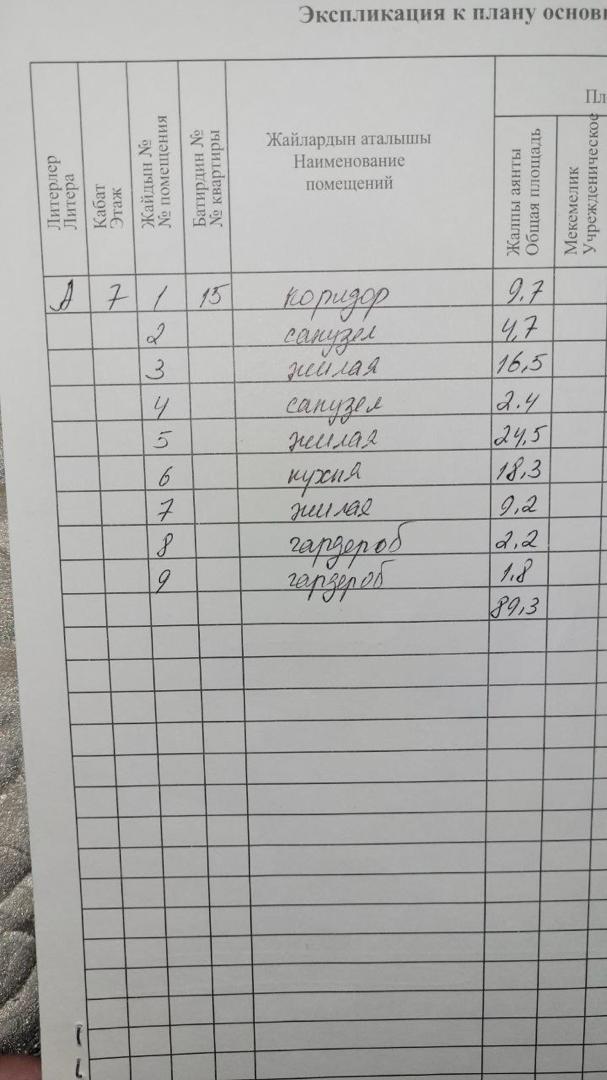 Экспликация к плану основн
Литерлер
Литера
Кабат
Этаж
Жайдын №
№ помещения
Батирдин №
№ квартиры
Жайлардын аталышы
Наименование
помещений
Пл
Жалпы аянты
Общая площадь
Мекемелик
Учрежденическое
А 7 1 15 коридор 9.7
2 санузел 4,7
3 жилая 16,5
4 санузел 2.4
5 жилая 24,5
6 кухня 18,3
7 жилая 9,2
8 гардероб 2,2
9 гардероб 1.8
89,3